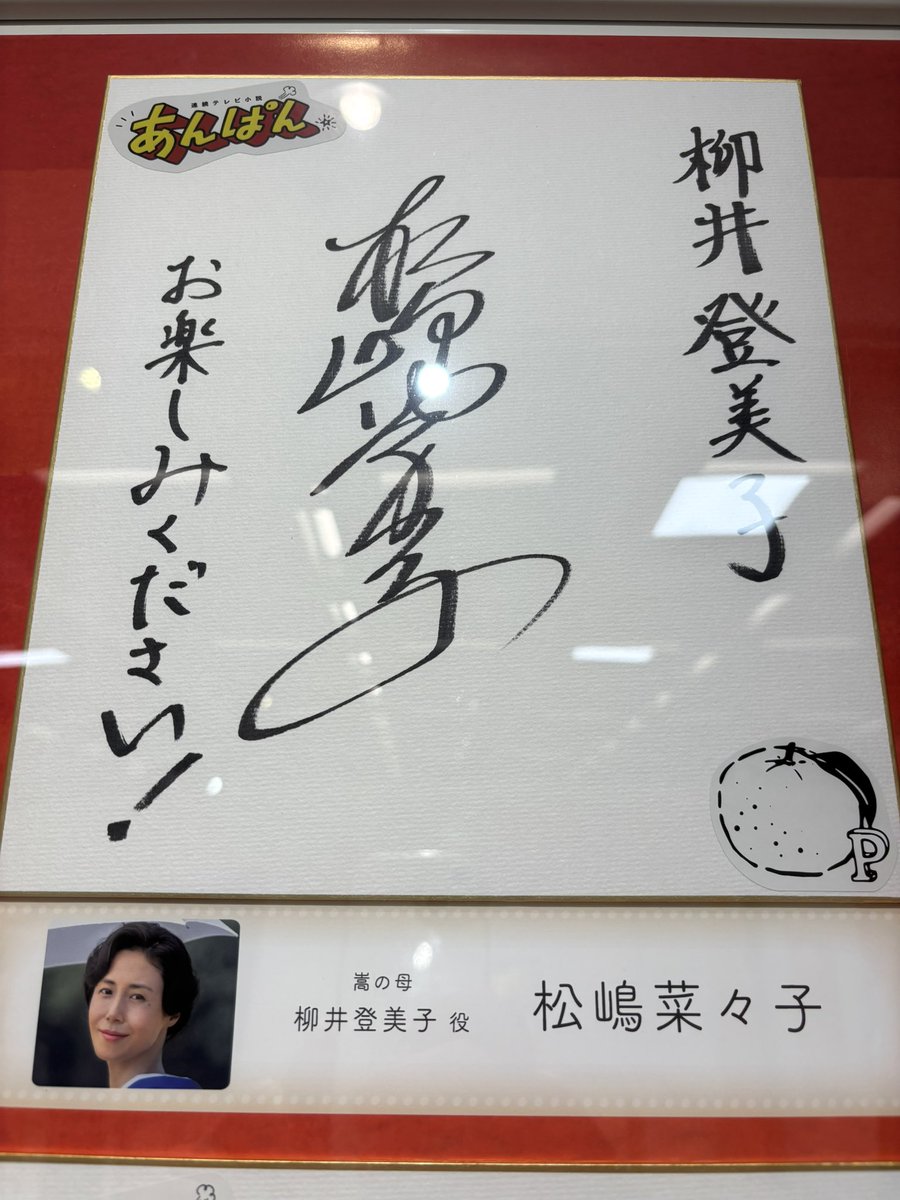 連続テレビ小説
あんぱん
柳井登美子
松嶋菜々子
お楽しみください!
P
嵩の母
柳井登美子 役
松嶋菜々子